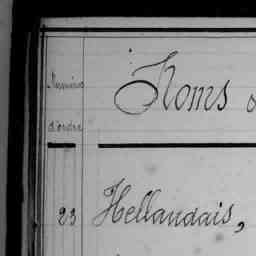 Numéros
d'ordre
Noms
23 Hellaudais,